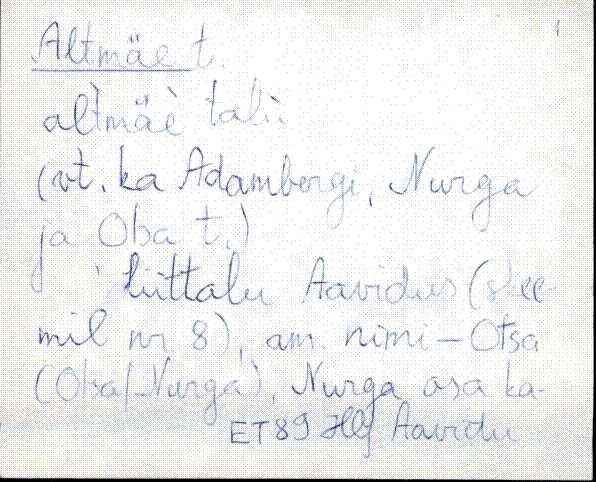 1
Altmäe t.
al̀tmäè talù
(vt. ka Adambergi, Nurga
ja Oba t.)
liittalu Aavidus (skee-
mil nr 8), am. nimi – Otsa
(Otsa/-Nurga), Nurga osa ka-
ET 89 HLj Aavidu